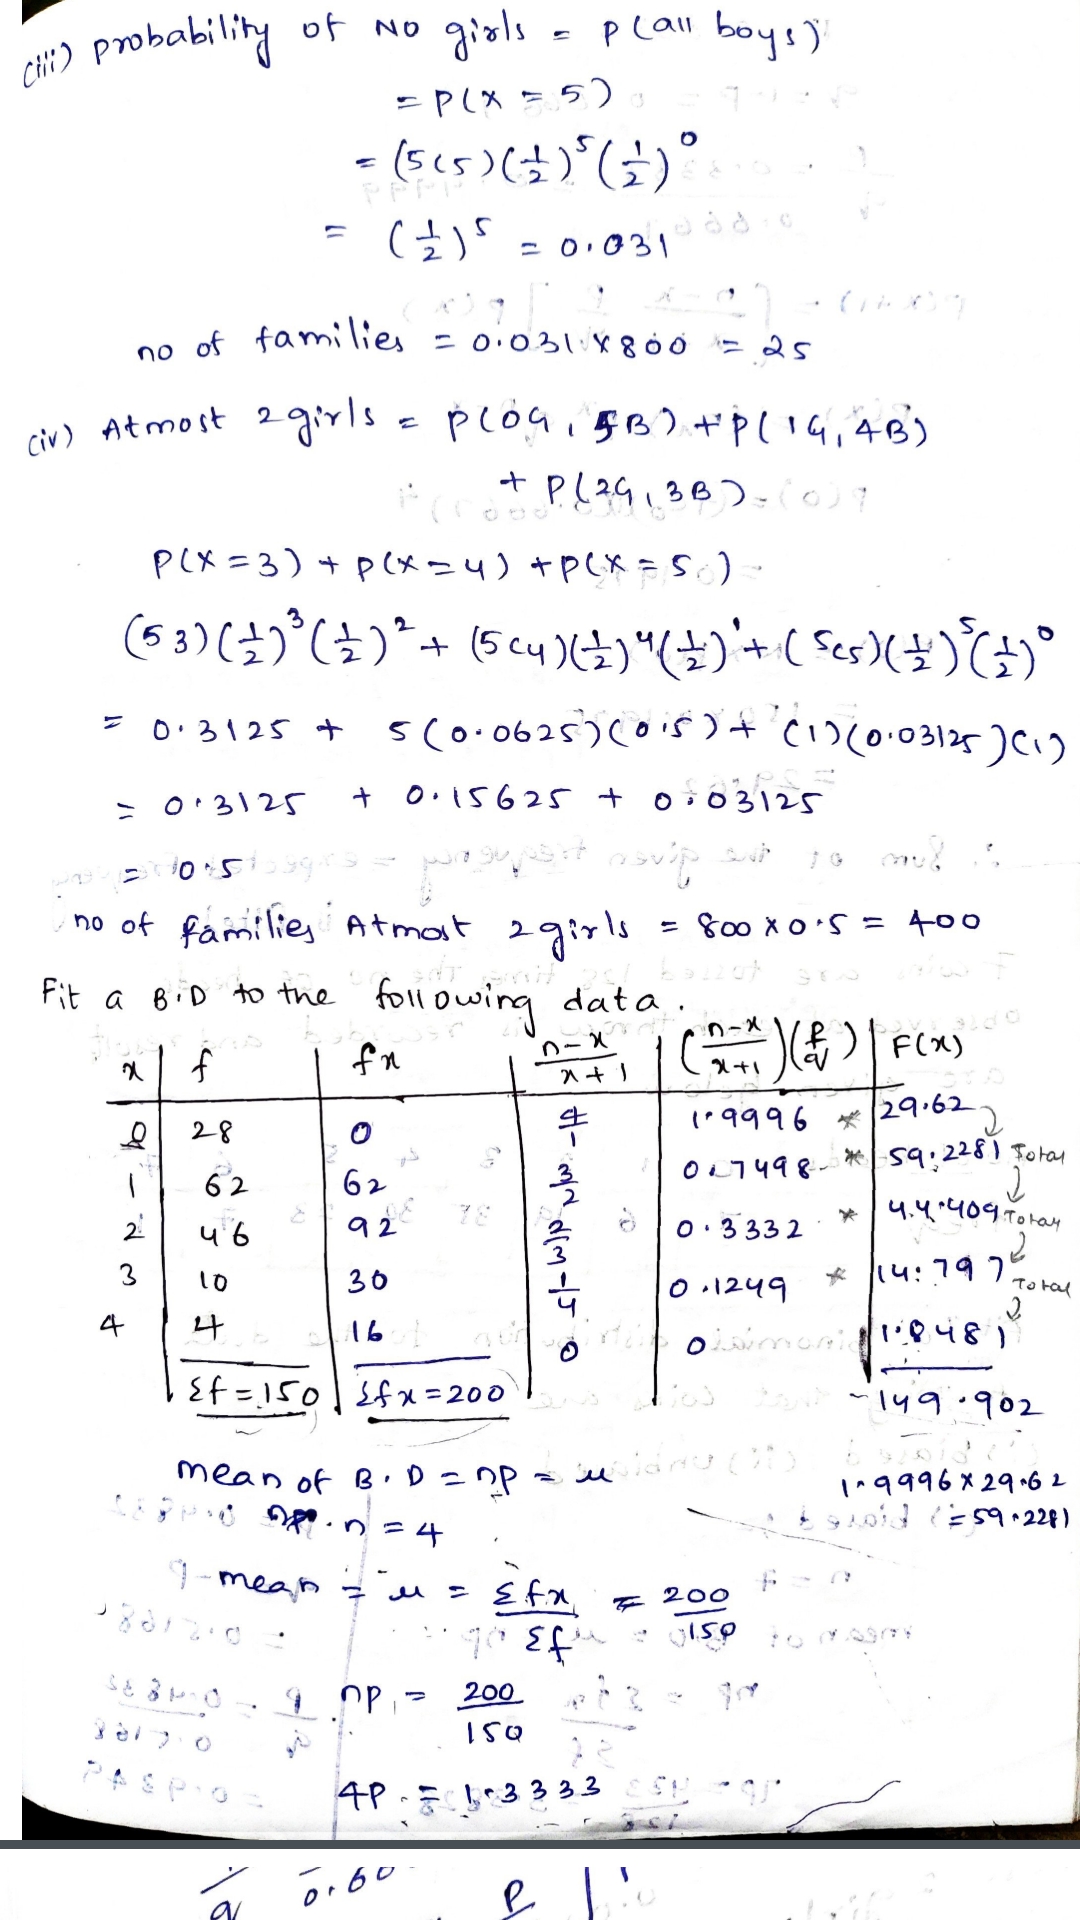 (iii) probability of No girls = P(all boys)
= P(x = 5)
= (5C5)(1/2)^5(1/2)^0
= (1/2)^5 = 0.031
no of families = 0.031 x 800 = 25
(iv) Atmost 2 girls = P(0G, 5B) + P(1G, 4B)
+ P(2G, 3B)
P(x=3) + P(x=4) + P(x=5)
(5 3)(1/2)^3(1/2)^2 + (5C4)(1/2)^4(1/2)^1 + (5C5)(1/2)^5(1/2)^0
= 0.3125 + 5(0.0625)(0.5) + (1)(0.03125)(1)
= 0.3125 + 0.15625 + 0.03125
= 0.5
no of families Atmost 2 girls = 800 x 0.5 = 400
Fit a B.D to the following data.
x | f | fx | n-x/x+1 | (n-x/x+1)(p/q) | F(x)
0 | 28 | 0 | 4/1 | 1.9996 * | 29.62
1 | 62 | 62 | 3/2 | 0.7498 * | 59.2281 Total
2 | 46 | 92 | 2/3 | 0.3332 * | 44.409 Total
3 | 10 | 30 | 1/4 | 0.1249 * | 14.797 Total
4 | 4 | 16 | 0 | 0 | 1.8481
Σf = 150 | Σfx = 200 | ~149.902
mean of B.D = np = μ
1.9996 x 29.62
n = 4
= 59.2281
mean = μ = Σfx/Σf = 200/150
np = 200/150
4P = 1.3333
q 0.60
P